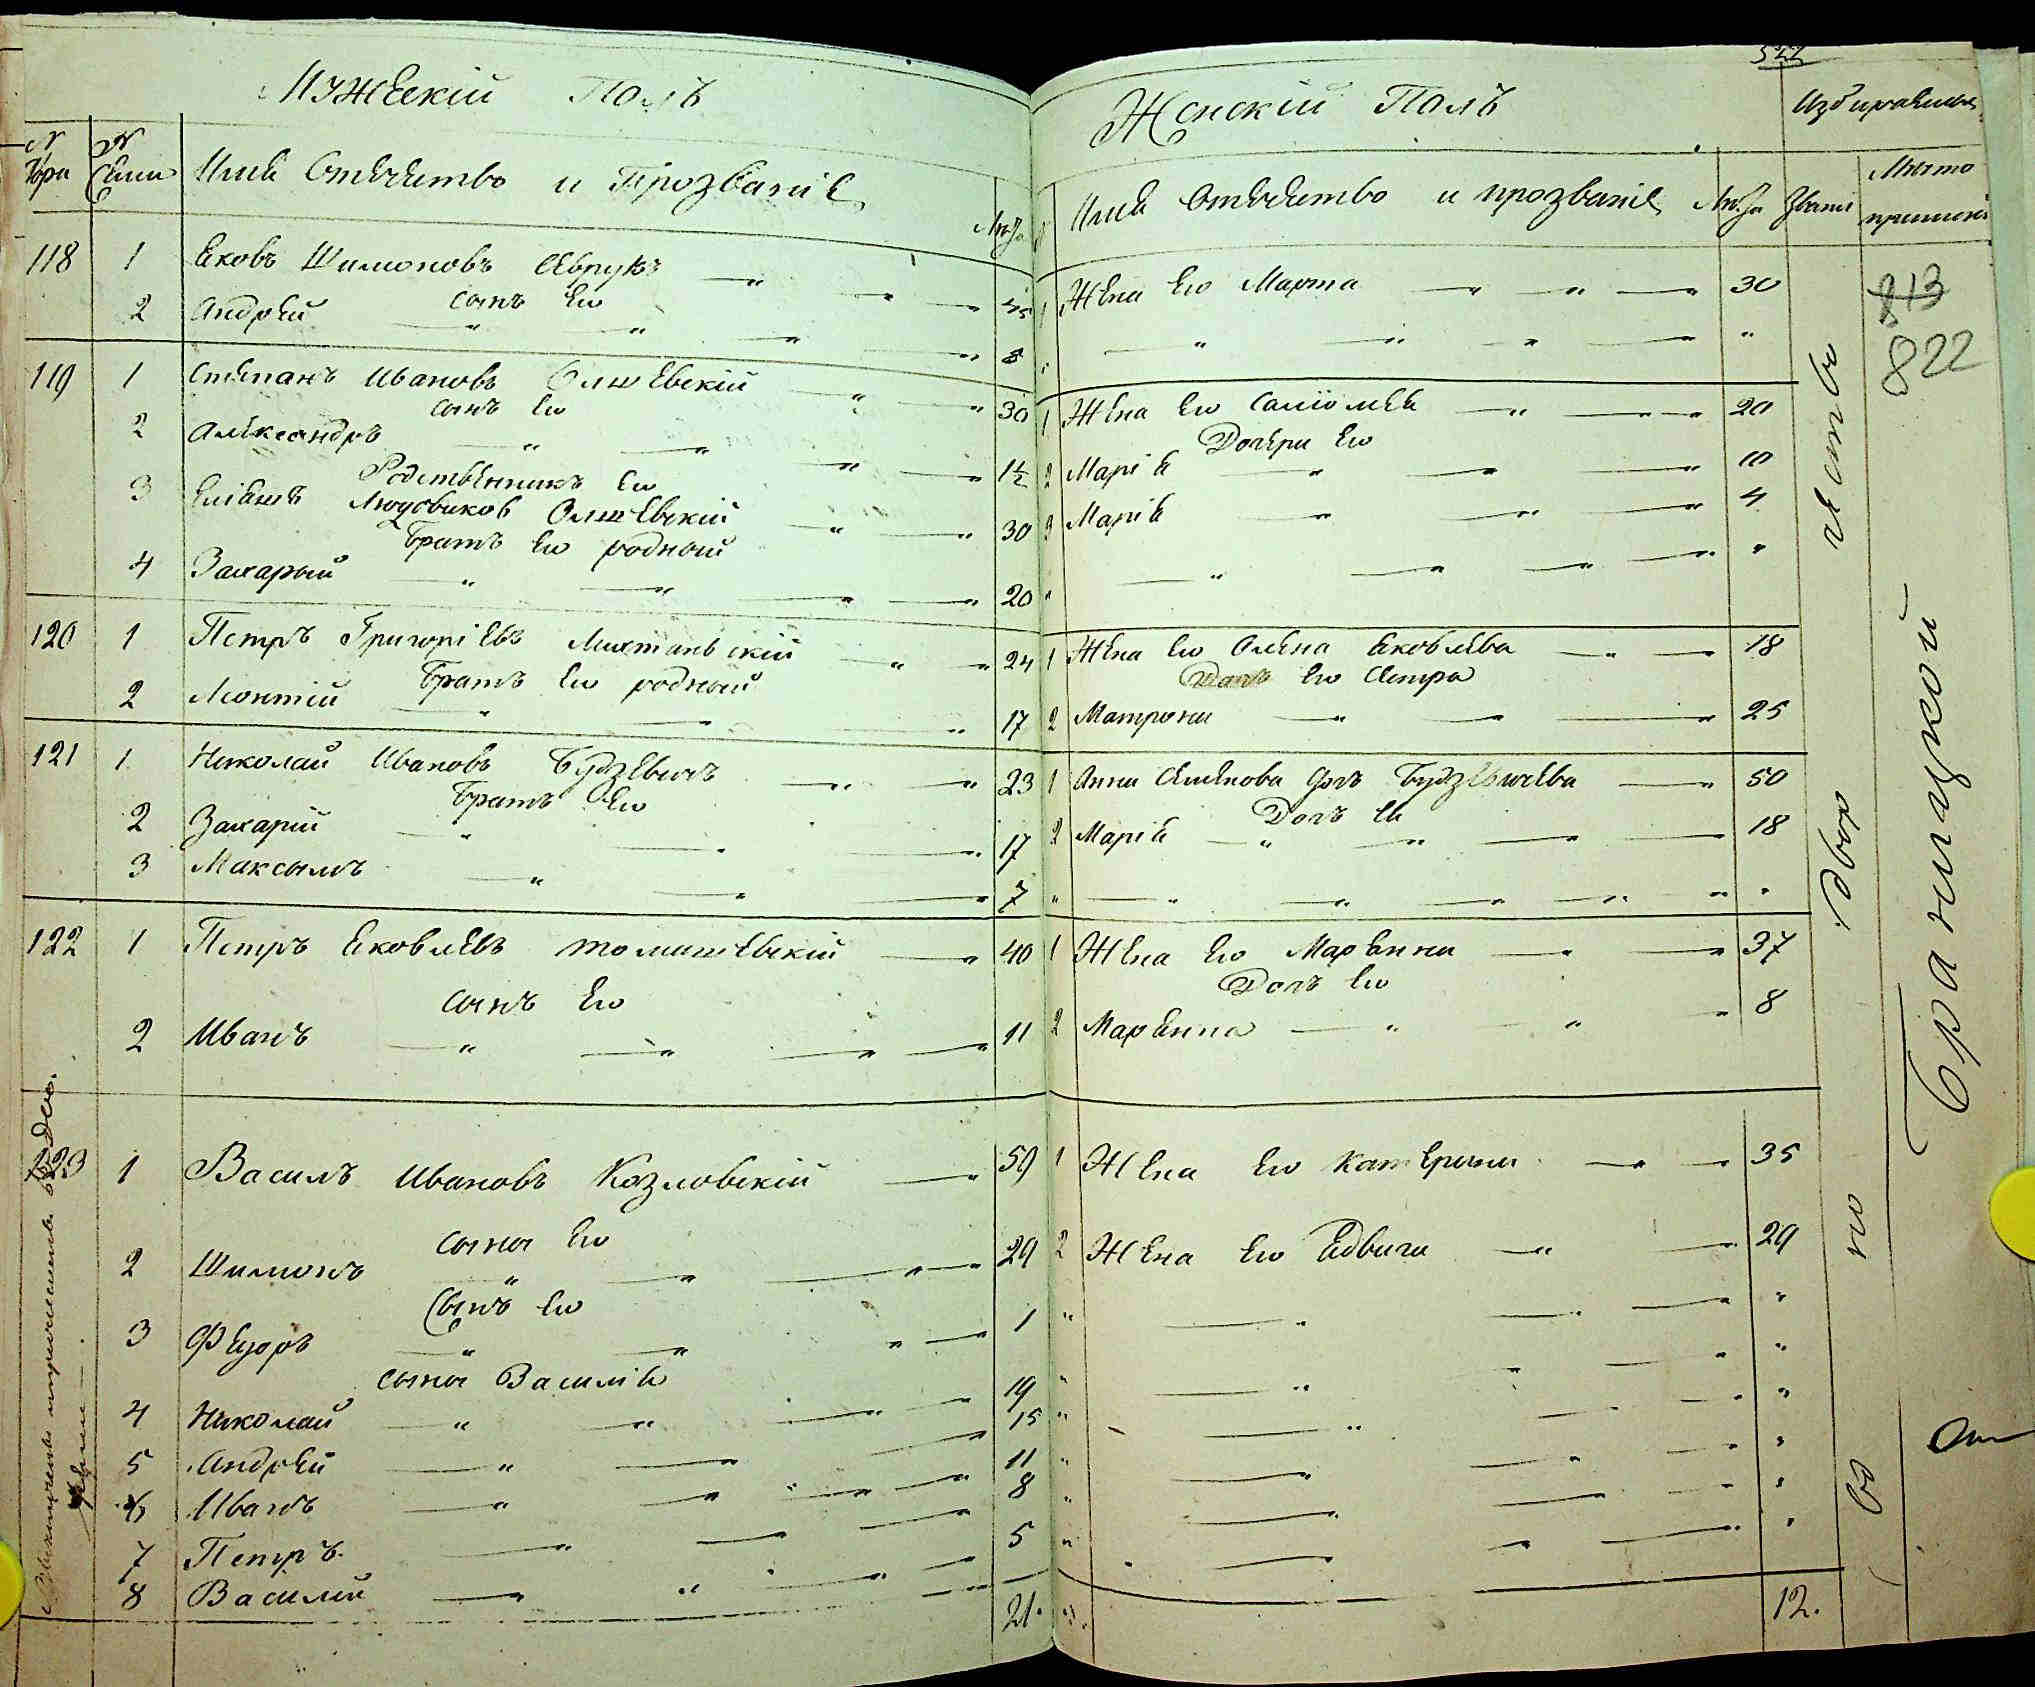 Мужескій Полъ
N Двора
N Семьи
Имя Отечество и Прозваніе
Лѣта
118 1 Яковъ Шимоновъ Яврукъ 45
сынъ Его
2 Андрей 8
119 1 Степанъ Ивановъ Олшевскій 30
сынъ Его
2 Александръ 1½
Родственникъ Его
3 Еліяшъ Людовиковъ Олшевскій 30
Братъ Его родный
4 Захарый 20
120 1 Петръ Григоріевъ 24
Братъ Его родный
2 Леонтій 17
121 1 Николай Ивановъ Будзевичъ 23
Братъ Его
2 Захарій 17
3 Максымъ 7
122 1 Петръ Яковлевъ Томашевскій 40
сынъ Его
2 Иванъ 11
123 1 Василъ Ивановъ Козловскій 59
сыны Его
2 Шимонъ 29
Сынъ Его
3 Феδоръ 1
сыны Василія
4 Николай 19
5 Андрей 15
6 Иванъ 11
7 Петръ 8
8 Василій 5
21.
522
Женскій Полъ
Избирательн
Имя Отечество и прозваніе
Лѣта
Званіе
Мѣсто
813
822
1 Жена Его Марта 30
1 Жена Его Саліомея 20
Дочери Его
2 Марія 10
3 Марія 4
1 Жена Его Олена Яковлева 18
Дочь Его Сестра
2 Матрона 25
1 Анна Семенова дочь Будзевичева 50
Дочь Ея
2 Марія 18
1 Жена Его Марянна 37
Дочь Его
2 Марянна 8
1 Жена Его Катерина 35
2 Жена Его Ядвига 29
12.
но дворянство
Браницкой